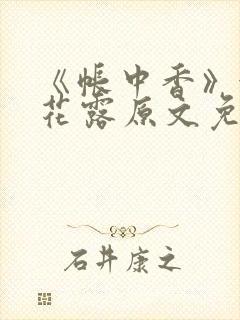 《帐中香》
花露原文免
石井康之